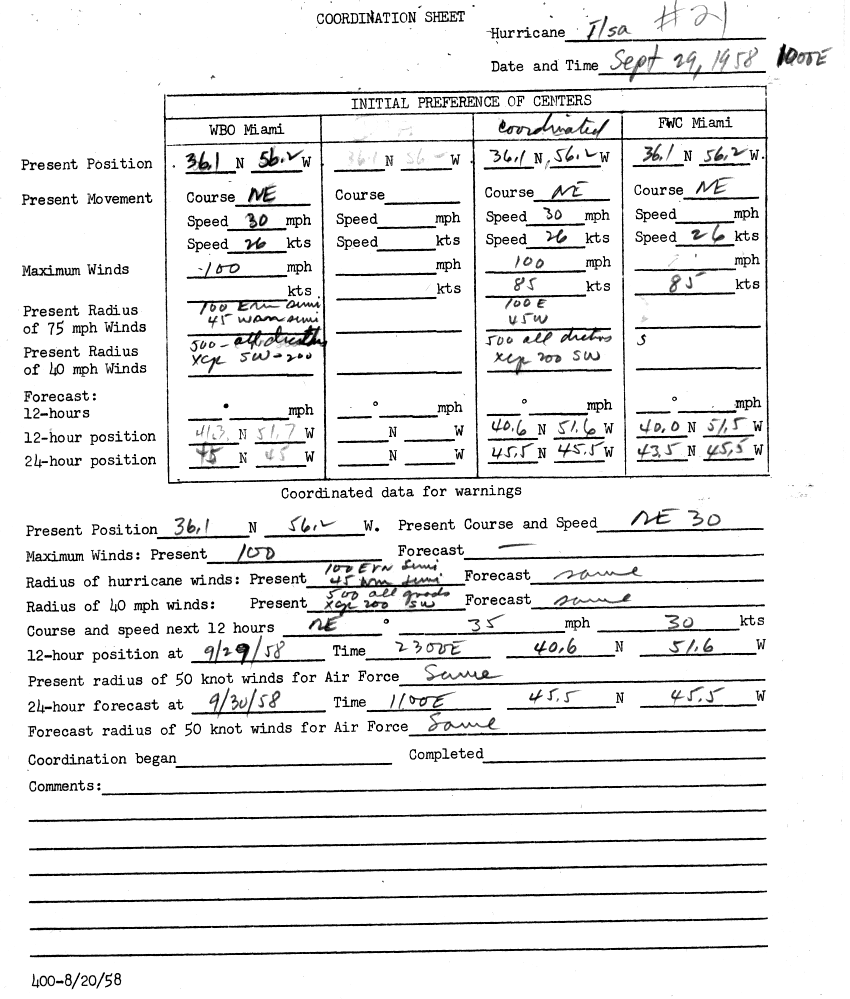 COORDINATION SHEET
Hurricane Ilsa #21
Date and Time Sept 29, 1958 1000E
INITIAL PREFERENCE OF CENTERS
WBO Miami Coordinated FWC Miami
Present Position 36.1 N 56.2 W 36.1 N 56 W 36.1 N, 56.2 W 36.1 N 56.2 W.
Present Movement Course NE Course Course NE Course NE
Speed 30 mph Speed mph Speed 30 mph Speed mph
Speed 26 kts Speed kts Speed 26 kts Speed 26 kts
Maximum Winds 100 mph mph 100 mph mph
kts kts 85 kts 85 kts
Present Radius 100 Ern semi 100 E
of 75 mph Winds 45 semi 45W
Present Radius 500 - all 500 all
of 40 mph Winds xcp SW - 200 xcp 200 SW
Forecast:
12-hours ° mph ° mph ° mph ° mph
12-hour position 41.3 N 51.7 W N W 40.6 N 51.6 W 40.0 N 51.5 W
24-hour position 45 N 45 W N W 45.5 N 45.5 W 43.5 N 45.5 W
Coordinated data for warnings
Present Position 36.1 N 56.2 W. Present Course and Speed NE 30
Maximum Winds: Present 100 Forecast —
Radius of hurricane winds: Present 100 Ern Semi 45 Wrn Semi Forecast same
Radius of 40 mph winds: Present 500 all quads xcp 200 SW Forecast same
Course and speed next 12 hours NE ° 35 mph 30 kts
12-hour position at 9/29/58 Time 2300E 40.6 N 51.6 W
Present radius of 50 knot winds for Air Force Same
24-hour forecast at 9/30/58 Time 1100E 45.5 N 45.5 W
Forecast radius of 50 knot winds for Air Force Same
Coordination began Completed
Comments:
400-8/20/58